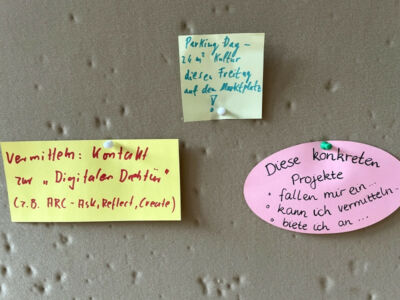 Parking Day –
24 m² Kultur
diesen Freitag
auf dem Marktplatz
!
Vermitteln: Kontakt
zur „Digitalen Drehtür"
(z.B. ARC - Ask, Reflect, Create)
Diese konkreten
Projekte
• fallen mir ein...
• kann ich vermitteln..
• biete ich an...